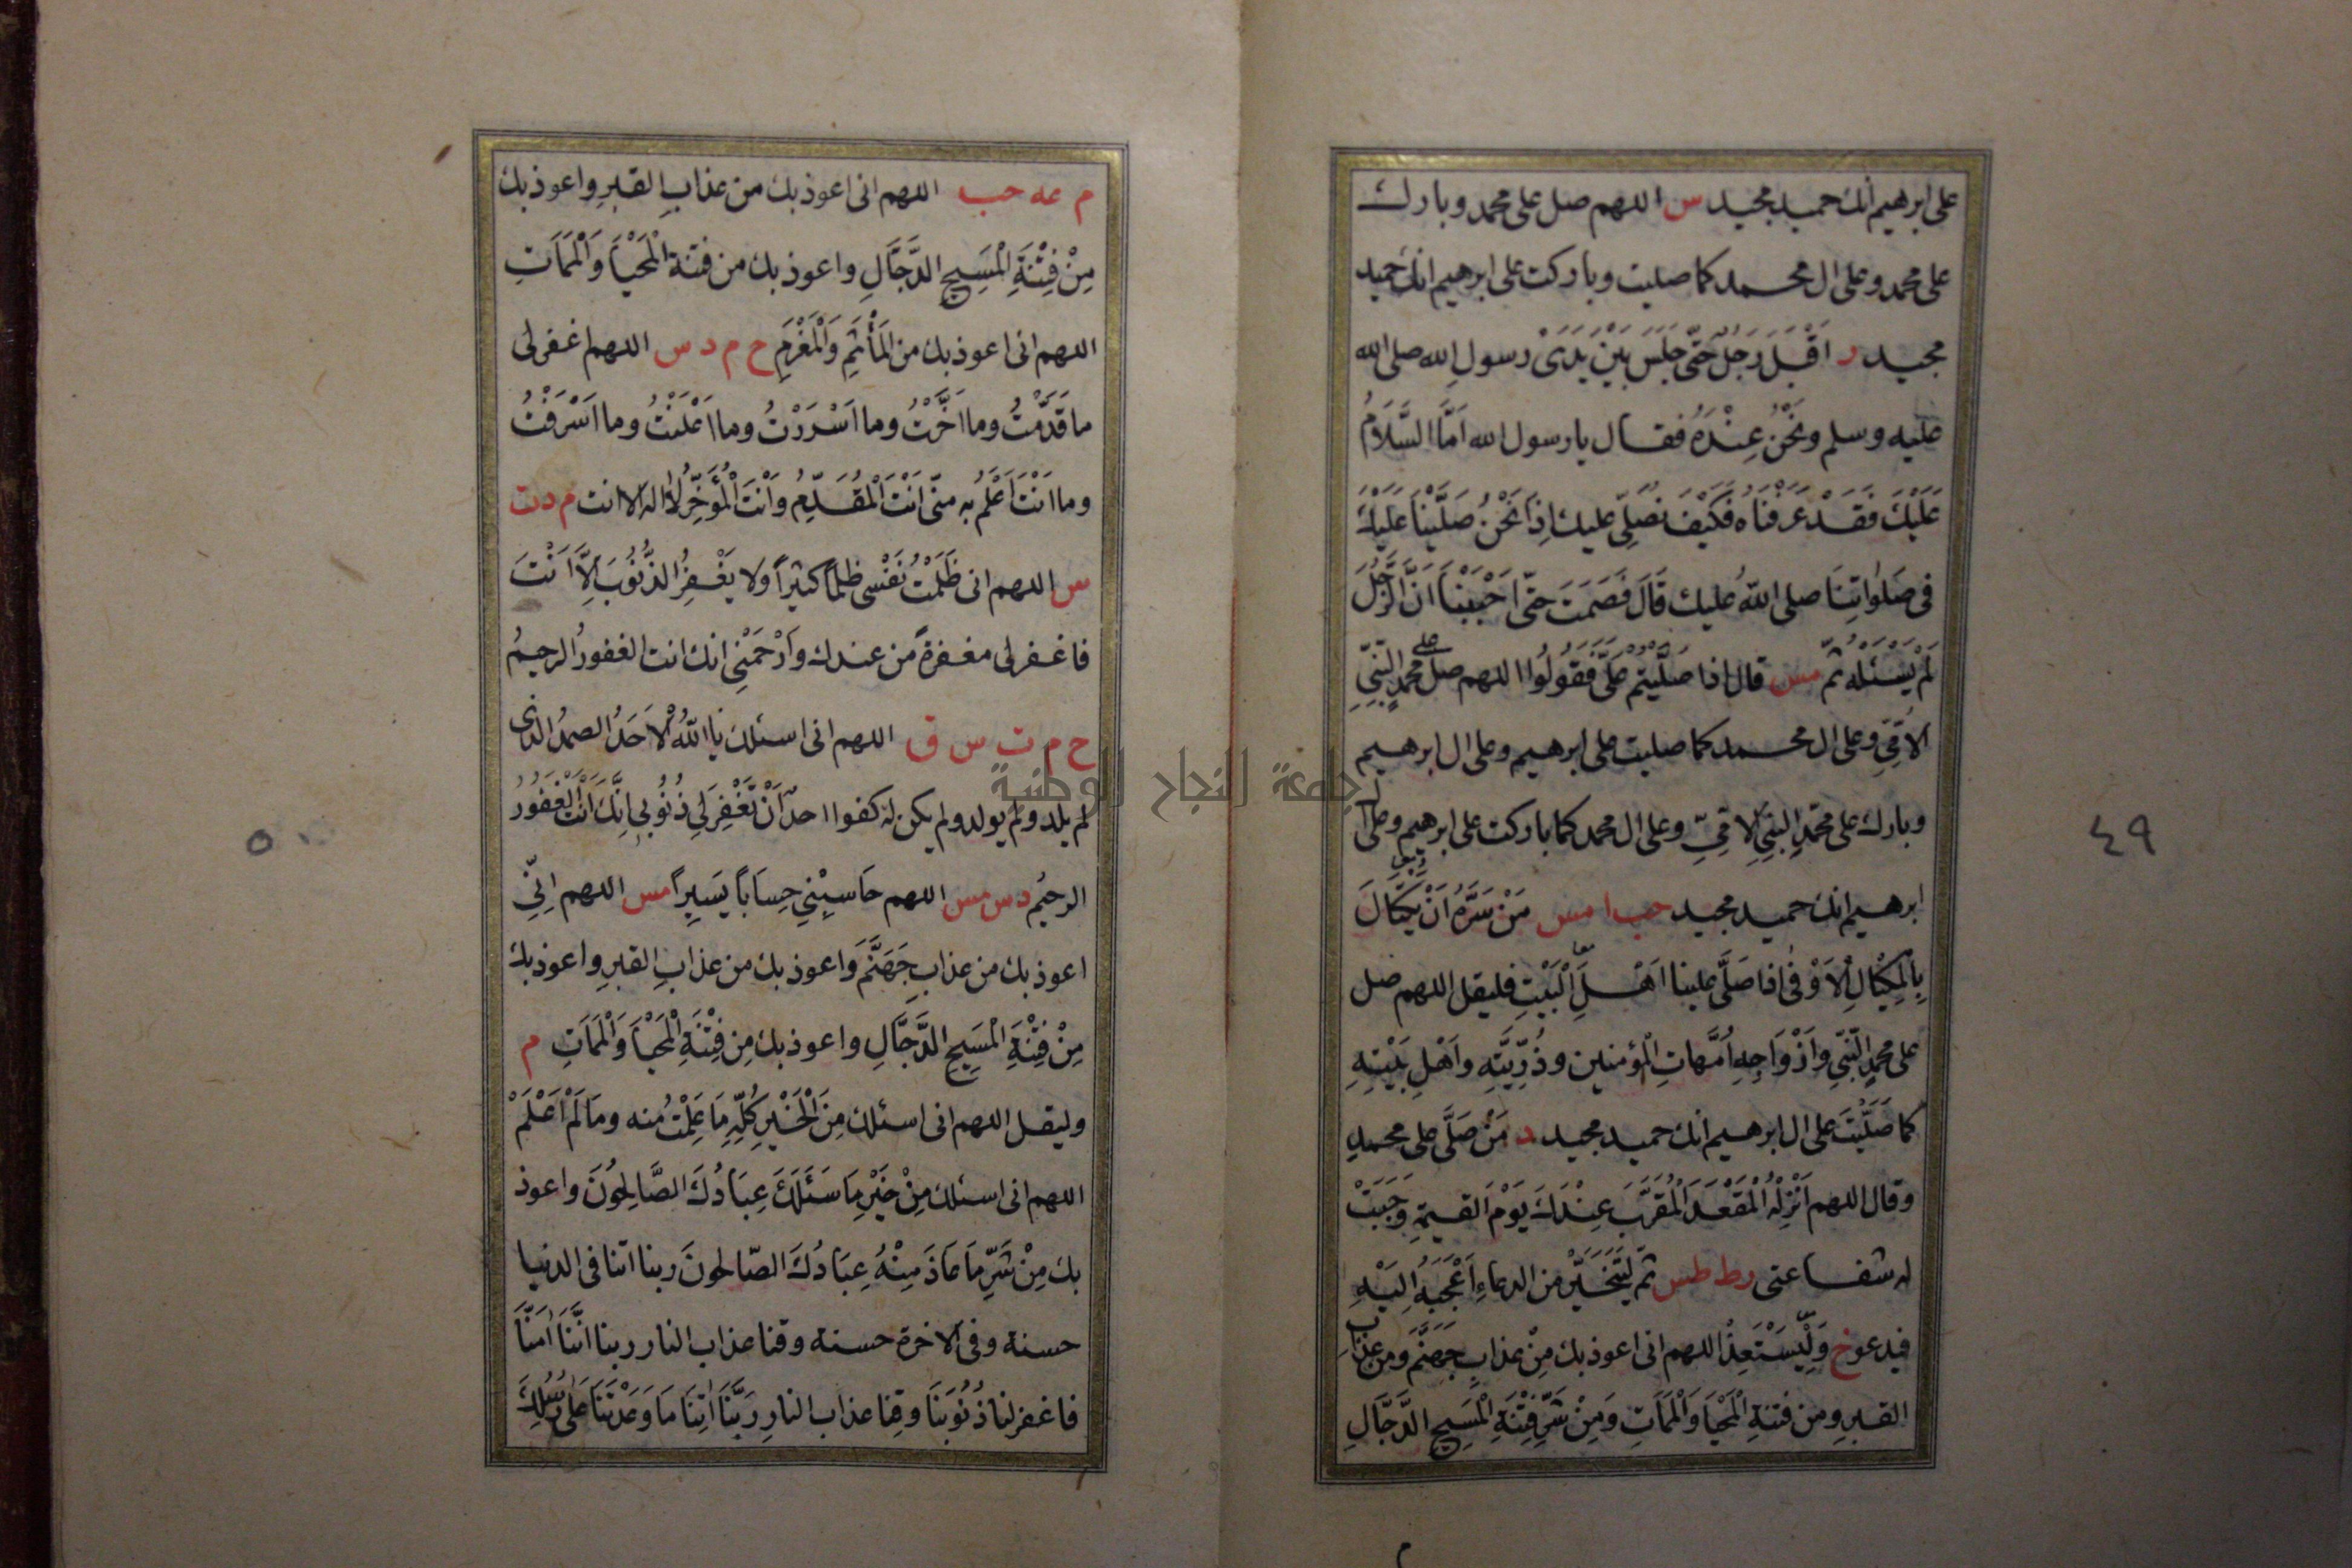 على ابرهيم انك حميد مجيد س اللهم صل على محمد وبارك
على محمد وعلى ال محمد كما صليت وباركت على ابرهيم انك حميد
مجيد ر اَقْبَلَ رَجُلٌ حَتّى جَلَسَ بَيْنَ يَدَىْ رسولِ الله صلى الله
عليه وسلم ونَحْنُ عِنْدَهُ فقال يا رسول الله اَمَّا السَّلَامُ
عَلَيْكَ فَقَدْ عَرَفْنَاهُ فَكَيْفَ نُصَلِّى عليك اِذَا نَحْنُ صَلَّيْنَا عَلَيْكَ
فى صَلَواتِنَا صلى اللهُ عليك قَالَ فَصَمَتَ حَتّى اَحْبَبْنَا اَنَّ الرَّجُلَ
لَمْ يَسْئَلْهُ ثمّ مس قال اذا صَلَّيْتُم عَلَىَّ فَقُولُوا اللهم صل على محمدٍ النَّبِيِّ
الاُمِّيِّ وعلى ال محمد كما صليت على ابرهيم وعلى ال ابرهيم
وبارك على محمّدٍ النبيِّ الاُمّيِّ وعلى ال محمد كما باركت على ابرهيم وعلى ال
ابرهيم انك حميد مجيد حب ا مس مَنْ سَرَّهُ اَنْ يَكْتَالَ
بِالْمِكْيَالِ الْاَوْفٰى اذا صَلَّى علينا اَهْلَ الْبَيْتِ فليقل اللهم صل
على محمدٍ النَّبىِّ واَزْوَاجِهِ اُمَّهاتِ الْمؤمنين وذُرِّيَّتِه واَهْلِ بَيْتِهِ
كما صَلَّيْتَ على ال ابرهيم انك حميد مجيد د مَنْ صَلَّى على محمدٍ
وقال اللهم اَنْزِلْهُ الْمَقْعَدَ الْمُقَرَّبَ عِنْدَكَ يَوْمَ القيمةِ وَجَبَتْ
له شفاعتى رط طس ثمّ لْيَتَخَيَّرْ من الدعاءِ اَعْجَبَهُ اِلَيْهِ
فيدعو خ وَلْيَسْتَعِذْ اللهم انى اعوذ بك مِنْ عذابِ جَهَنَّمَ ومن عذابِ
القبرِ ومن فتنةِ الْمَحْيَا وَالْمَمَاتِ وَمِنْ شَرِّ فِتْنَةِ الْمَسِيحِ الدَّجَّالِ
٤٩
م عه حب اللهم انى اعوذ بك من عذابِ القبرِ واعوذ بك
مِنْ فِتْنَةِ الْمَسِيحِ الدَّجَّالِ واعوذ بك من فتنة الْمَحْيَا وَالْمَمَاتِ
اللهم انى اعوذ بك من الْمَأْثَمِ وَالْمَغْرَمِ خ م د س اللهم اغفر لى
ما قَدَّمْتُ وما اَخَّرْتُ وما اَسْرَرْتُ وما اَعْلَنْتُ وما اَسْرَفْتُ
وما اَنْتَ اَعْلَمُ به منّى اَنْتَ الْمُقَدِّمُ وَاَنْتَ الْمُؤَخِّرُ لا اله الا انت م د ت
س اللهم انى ظَلَمْتُ نَفْسى ظلماً كثيراً ولا يَغْفِرُ الذُّنُوبَ اِلَّا اَنْتَ
فاغفر لى مغفرةً من عندك وَارْحَمْنِى انك انت الغفورُ الرحيمُ
خ م ت س ق اللهم انى اسئلك يَا اَللهُ الْاَحَدُ الصمدُ الذى
لم يلد ولم يولد ولم يكن له كفوا احدٌ اَنْ تَغْفِرَ لِى ذُنُوبى اِنَّكَ اَنْتَ الْغَفُورُ
الرحيُم د س مس اللهم حَاسِبْنِي حِسَاباً يَسِيراً مس اللهم اِنِّي
اعوذ بك من عذاب جَهَنَّمَ وَاعوذ بك من عذابِ القبرِ واعوذ بك
مِنْ فِتْنَةِ الْمَسِيحِ الدَّجَّالِ واعوذ بك مِن فِتْنَةِ الْمَحْيَا وَالْمَمَاتِ م
وليقل اللهم انى اسئلك مِنَ الْخَيْرِ كُلِّهِ مَا عَلِمْتُ منه ومَا لَمْ اَعْلَمْ
اللهم انى اسئلك مِنْ خَيْرِ مَا سَئَلَكَ عِبَادُكَ الصَّالِحُونَ واعوذ
بك مِنْ شَرِّ مَا عَاذَ مِنْهُ عِبَادُكَ الصّالحونَ ربنا اتنا فى الدنيا
حسنة وفى الاخرة حسنة وقنا عذاب النار ربنا اِنَّنَا اٰمَنَّا
فاغفر لنا ذُنُوبَنَا وقِنا عذاب النارِ رَبَّنَا اٰتِنَا مَا وَعَدْتَنَا عَلٰى رُسُلِكَ
٥٠
جامعة النجاح الوطنية